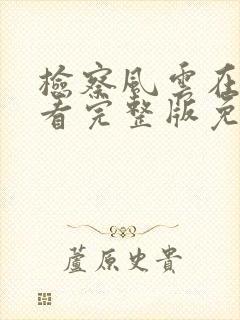 檢察風雲在
看完整版免
蘆原史貴